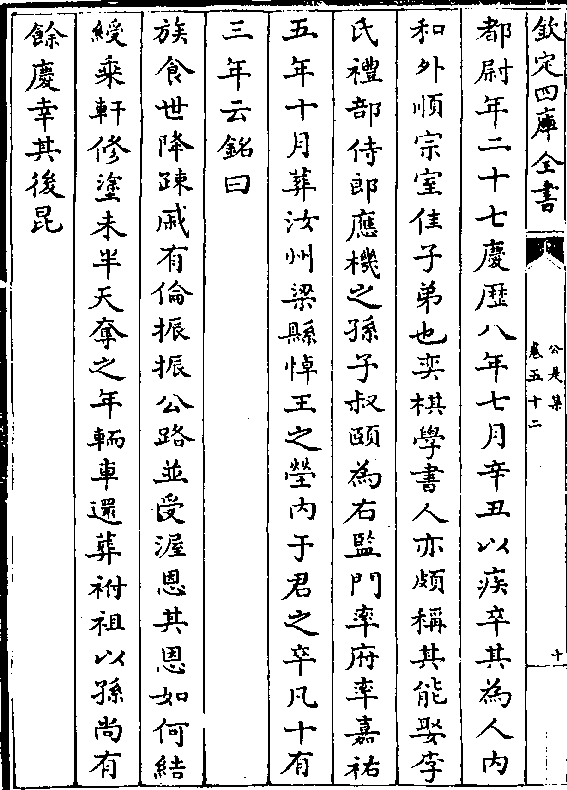 欽定四庫全書
公是集
卷五十二
十
都尉年二十七慶厯八年七月辛丑以疾卒其為人内
和外順宗室佳子弟也奕棋學書人亦頗稱其能娶李
氏禮部侍郎應機之孫子叔頤為右監門率府率嘉祐
五年十月葬汝州梁縣悼王之塋内于君之卒凡十有
三年云銘曰
族食世降疎戚有倫振振公路並受渥恩其恩如何結
綬乘軒修塗未半天奪之年輀車還葬祔祖以孫尚有
餘慶幸其後昆